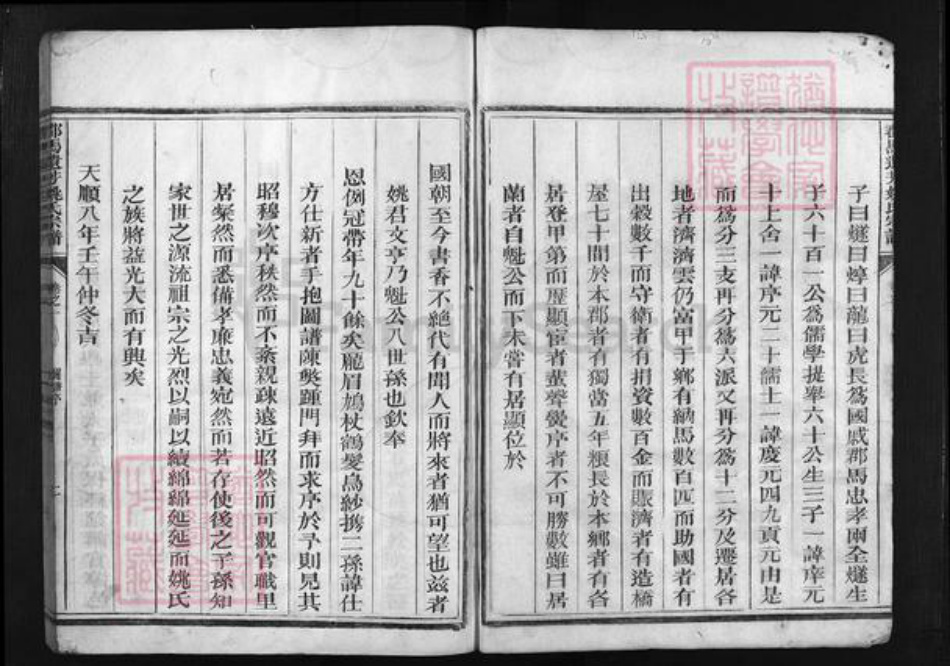 子曰燧曰焞曰龍曰虎長為國戚郡馬忠孝兩全燧生
子六十百一公為儒學提舉六十公生三子一諱庠元
十上舍一諱序元二十儒士一諱度元四九貢元由是
而為分三支再分為六派又再分為十二分及遷居各
地者濟濟雲仍富甲于鄉有納馬數百匹而助國者有
出穀數千而守衛者有捐資數百金而賑濟者有造橋
屋七十間於本郡者有獨當五年粮長於本鄉者有各
居登甲第而歷顯宦者蜚聲黌序者不可勝數雖曰居
蘭者自魁公而下未嘗有居顯位於
國朝至今書香不絕代有聞人而將來者猶可望也茲者
姚君文亨乃魁公八世孫也欽奉
恩例冠帶年九十餘矣龐眉鳩杖鶴髮烏紗携二孫諱仕
方仕新者手抱圖譜陳奬踵門拜而求序於予則見其
昭穆次序秩然而不紊親疎遠近昭然而可觀官職里
居粲然而悉備孝廉忠義宛然而若存使後之子孫知
家世之源流祖宗之光烈以嗣以續綿綿延延而姚氏
之族將益光大而有興矣
天順八年壬午仲冬吉
郡馬遺芳姚氏宗譜
卷之一